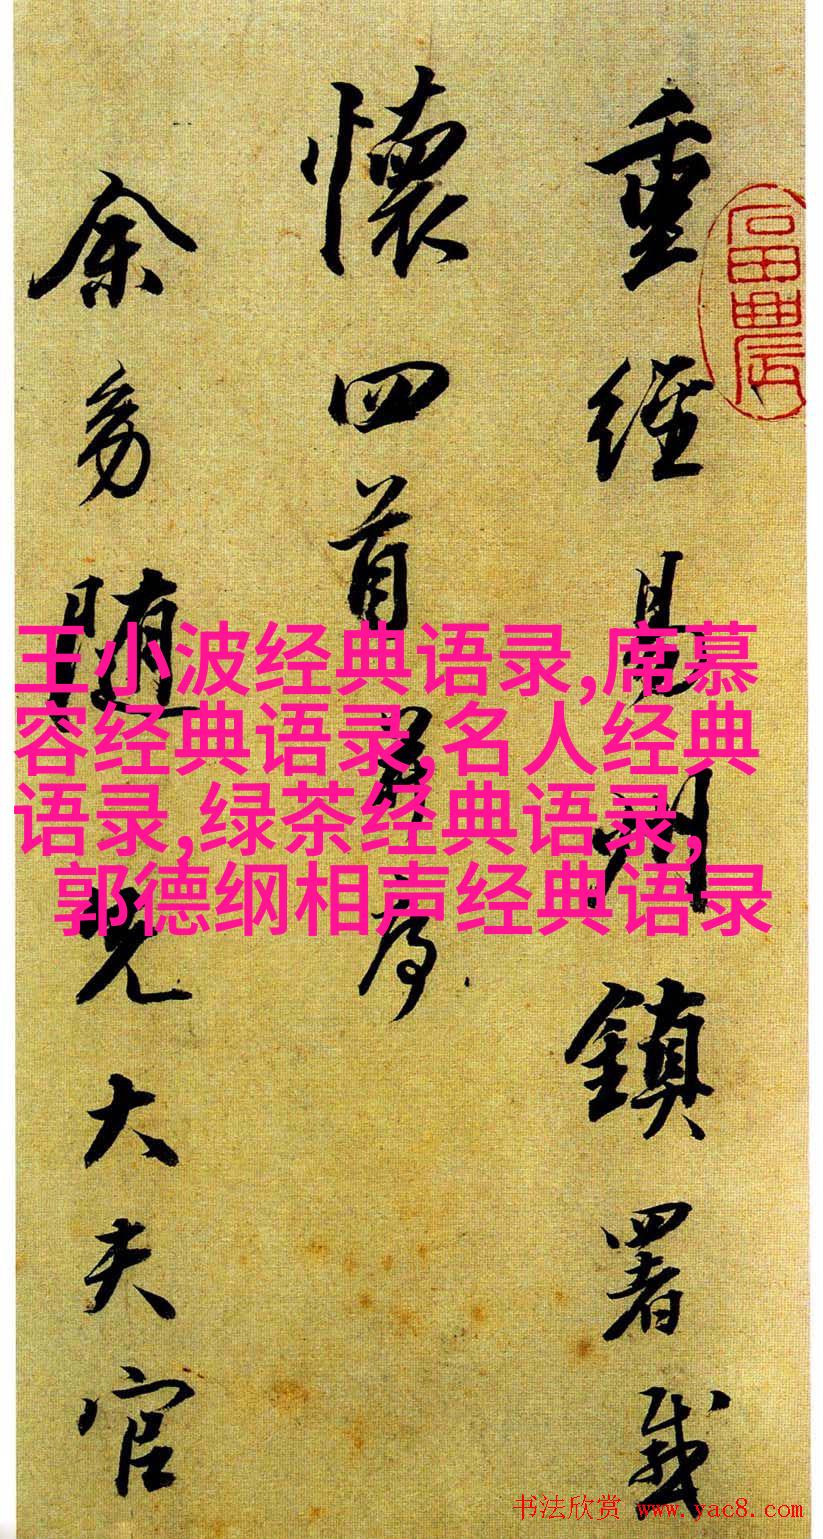 重經見州鎮署感
懷四首并序
余多隨先大夫官
王小波经典语录,席慕
容经典语录,名人经典
语录,绿茶经典语录,
郭德纲相声经典语录
书法欣赏 www.yac8.com